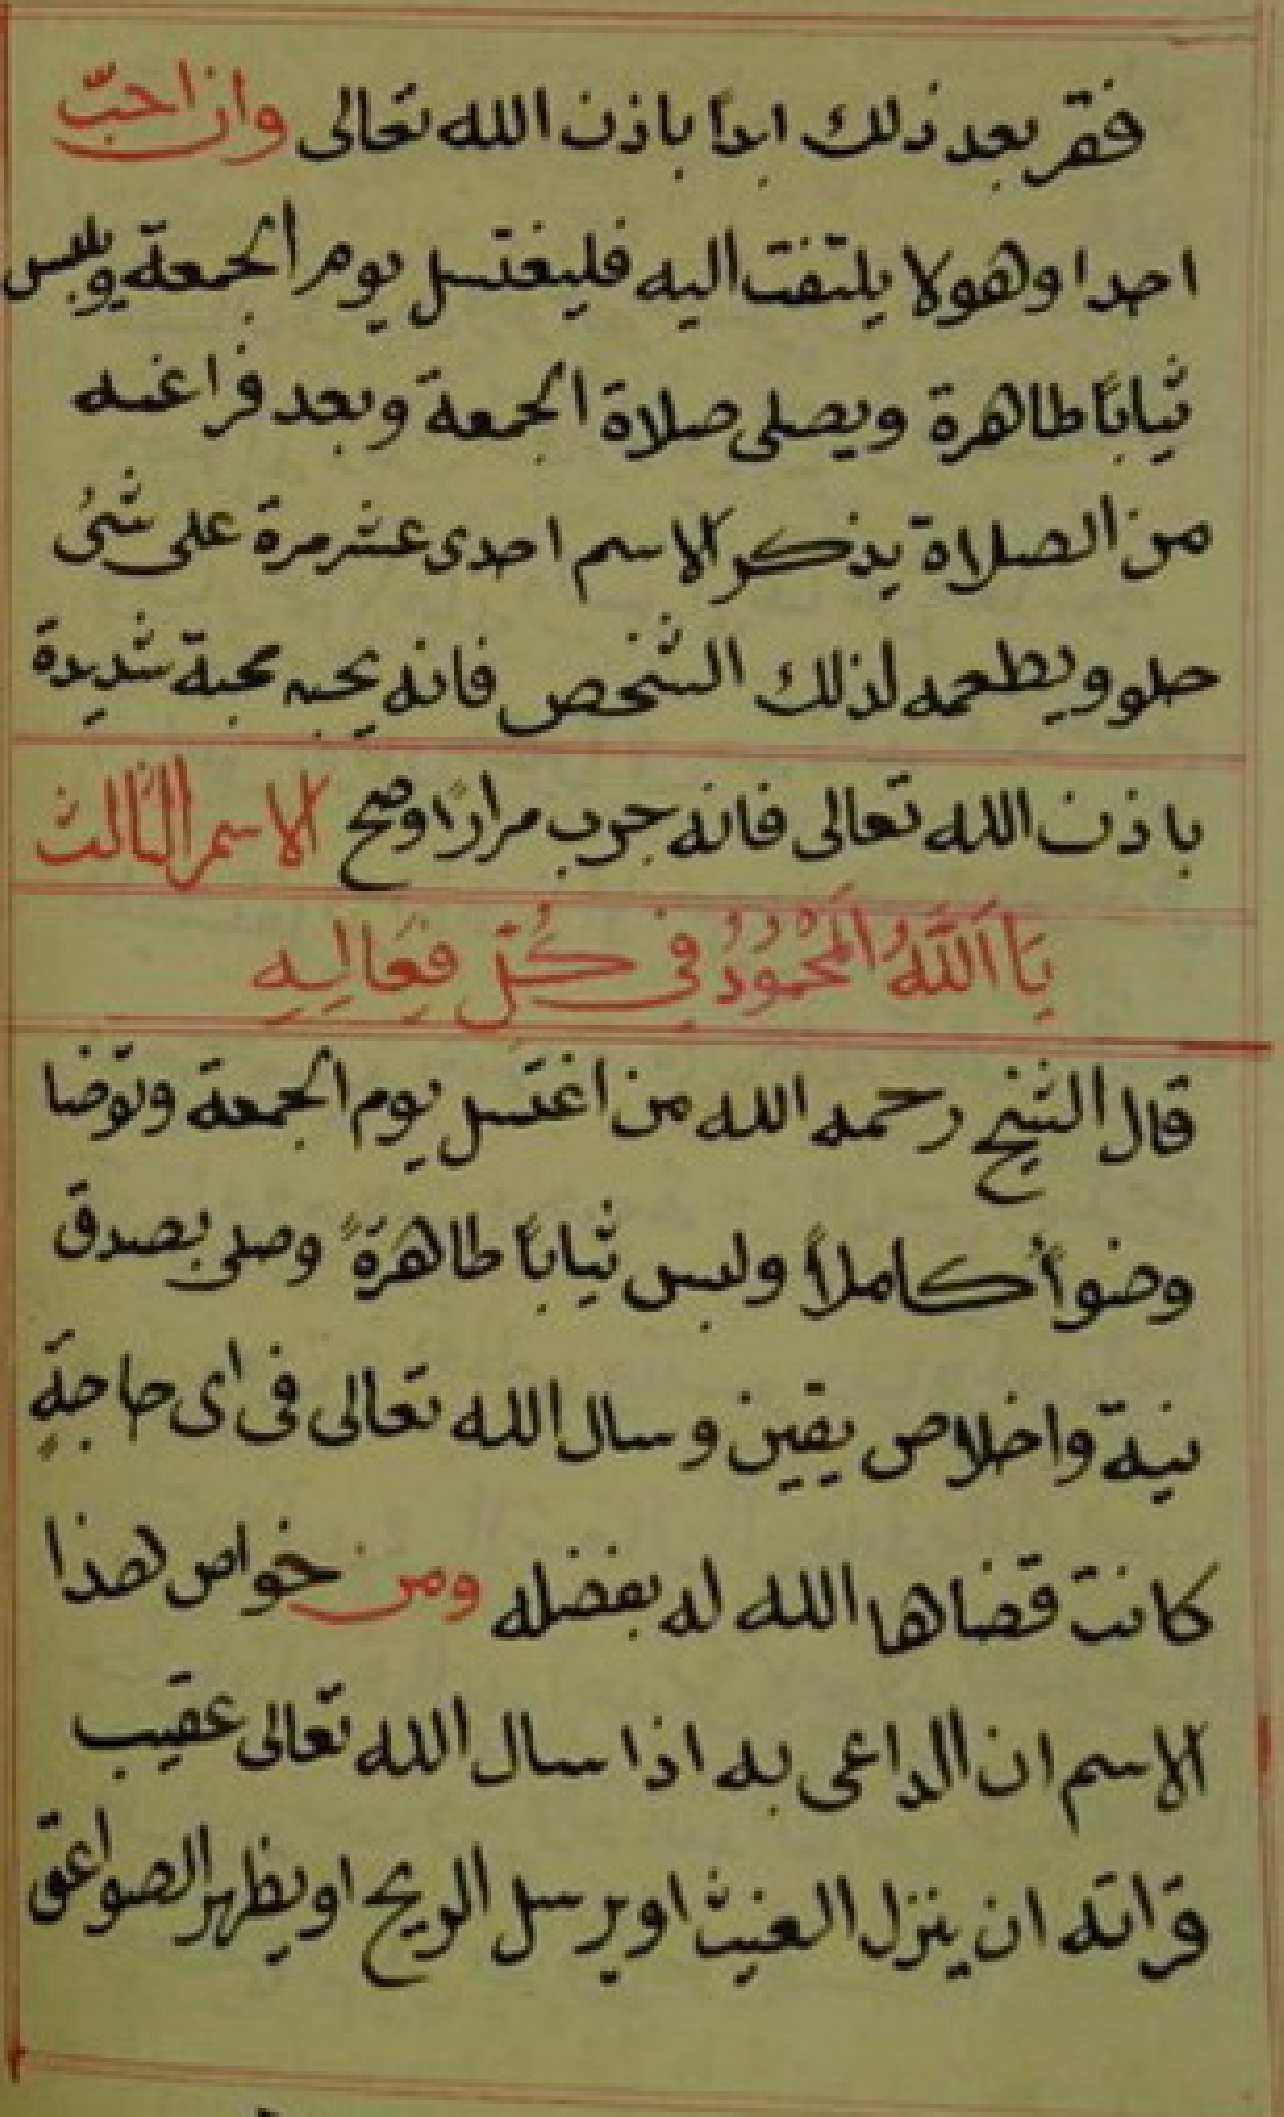 فقر بعد ذلك ابدًا باذن الله تعالى وان احبّ
احدا وهو لا يلتفت اليه فليغتسل يوم الجمعة ويلبس
ثيابًا طاهرة ويصلى صلاة الجمعة وبعد فراغه
من الصلاة يذكر الاسم احدى عشر مرة على شئ
حلو ويطعمه لذلك الشخص فانه يحبه محبة شديدة
باذن الله تعالى فانه جرب مرارًا وصح الاسم الثالث
يَا اَللَّهُ الْمَحْمُودُ فِي كُلِّ فِعَالِهِ
قال الشيخ رحمه الله من اغتسل يوم الجمعة وتوضا
وضوأً كاملاً ولبس ثيابًا طاهرةً وصلى بصدق
نية واخلاص يقين وسال الله تعالى فى اى حاجةٍ
كانت قضاها الله له بفضله ومن خواص هذا
الاسم ان الداعى به اذا سال الله تعالى عقيب
قراته ان ينزل الغيث او يرسل الريح او يظهر الصواعق